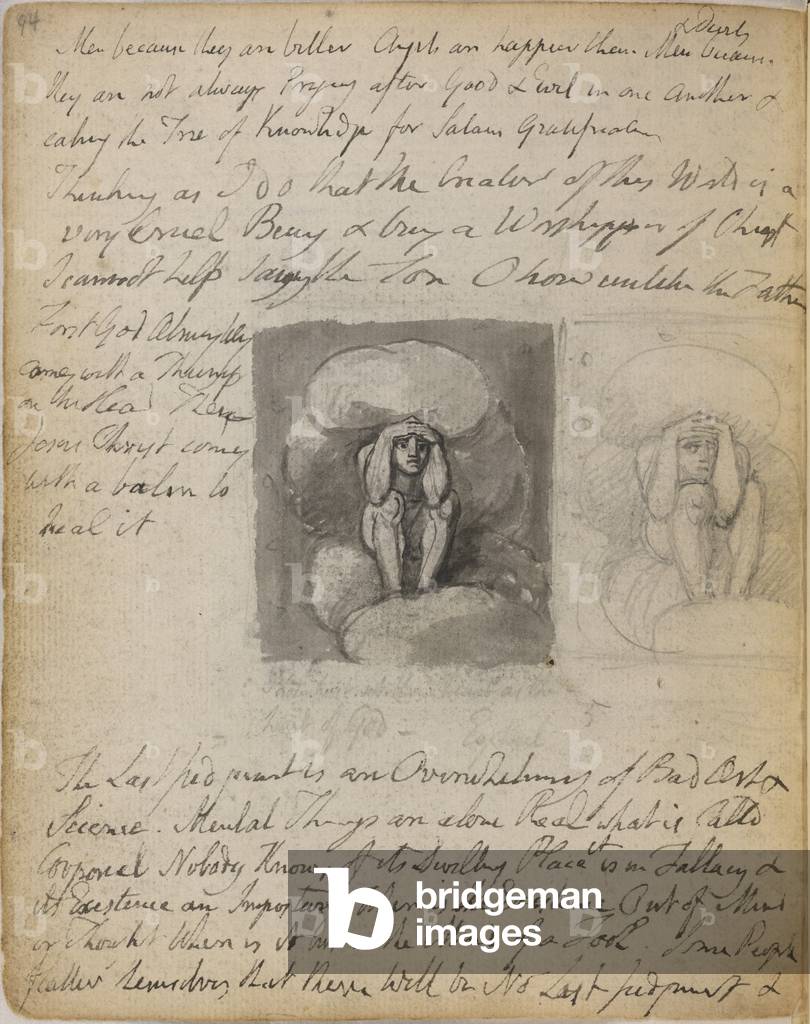 94
& Devils
Men because they are better Angels are happier than Men because
they are not always Prying after Good & Evil in one Another &
eating the Tree of Knowledge for Satans Gratification
Thinking as I do that the Creator of this World is a
very Cruel Being & being a Worshipper of Christ
I cannot help saying the Son O how unlike the Father
First God Almighty
comes with a Thump
on the Head Then
Jesus Christ comes
with a balm to
heal it
as the
heart of God - Ezekiel 5
The Last Judgment is an Overwhelming of Bad Art &
Science. Mental Things are alone Real what is Calld
Corporeal Nobody Knows of its Dwelling Place it is in Fallacy &
its Existence an Imposture Where is the Existence Out of Mind
or Thought Where is it but in the Mind of a Fool. Some People
flatter themselves that there will be No Last Judgment &
b bridgeman
images